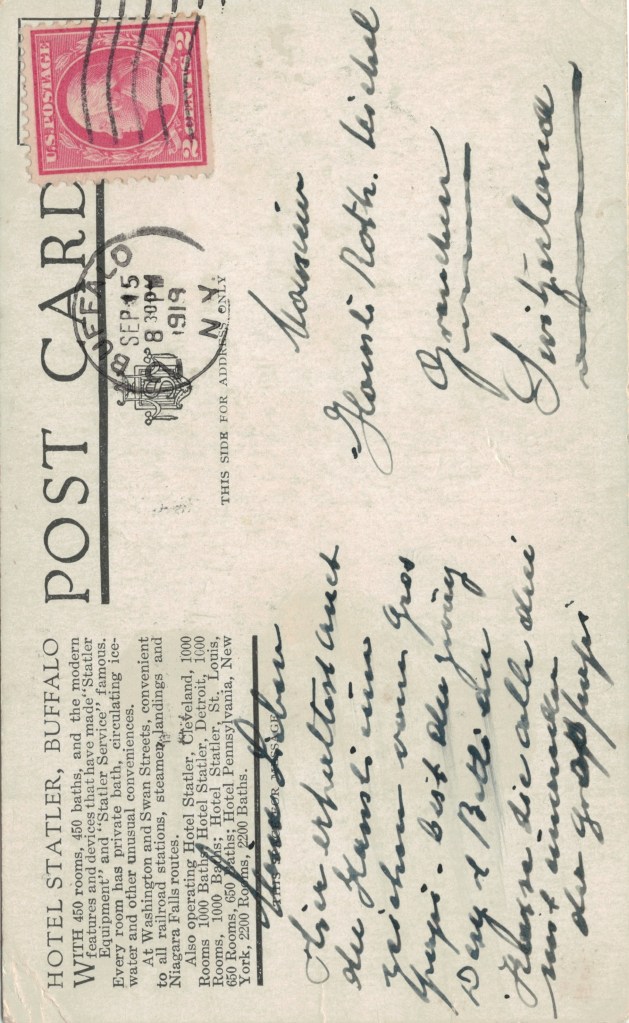 HOTEL STATLER, BUFFALO
WITH 450 rooms, 450 baths, and the modern
features and devices that have made "Statler
Equipment" and "Statler Service" famous.
Every room has private bath, circulating ice-
water and other unusual conveniences.
At Washington and Swan Streets, convenient
to all railroad stations, steamer landings and
Niagara Falls routes.
Also operating Hotel Statler, Cleveland, 1000
Rooms 1000 Baths; Hotel Statler, Detroit, 1000
Rooms, 1000 Baths; Hotel Statler, St. Louis,
650 Rooms, 650 Baths; Hotel Pennsylvania, New
York, 2200 Rooms, 2200 Baths.
THIS SIDE FOR MESSAGE
Lieben
Hier erhaltest auch
du Hansli ein
vom Gros
bist du
Bethi
Sie alle
mit einander
POST CARD
U.S. POSTAGE
2 CENTS 2
BUFFALO
SEP 15
8 30 PM
1919
N.Y.
THIS SIDE FOR ADDRESS ONLY
Hansli Roth.
Grenchen
Switzerland